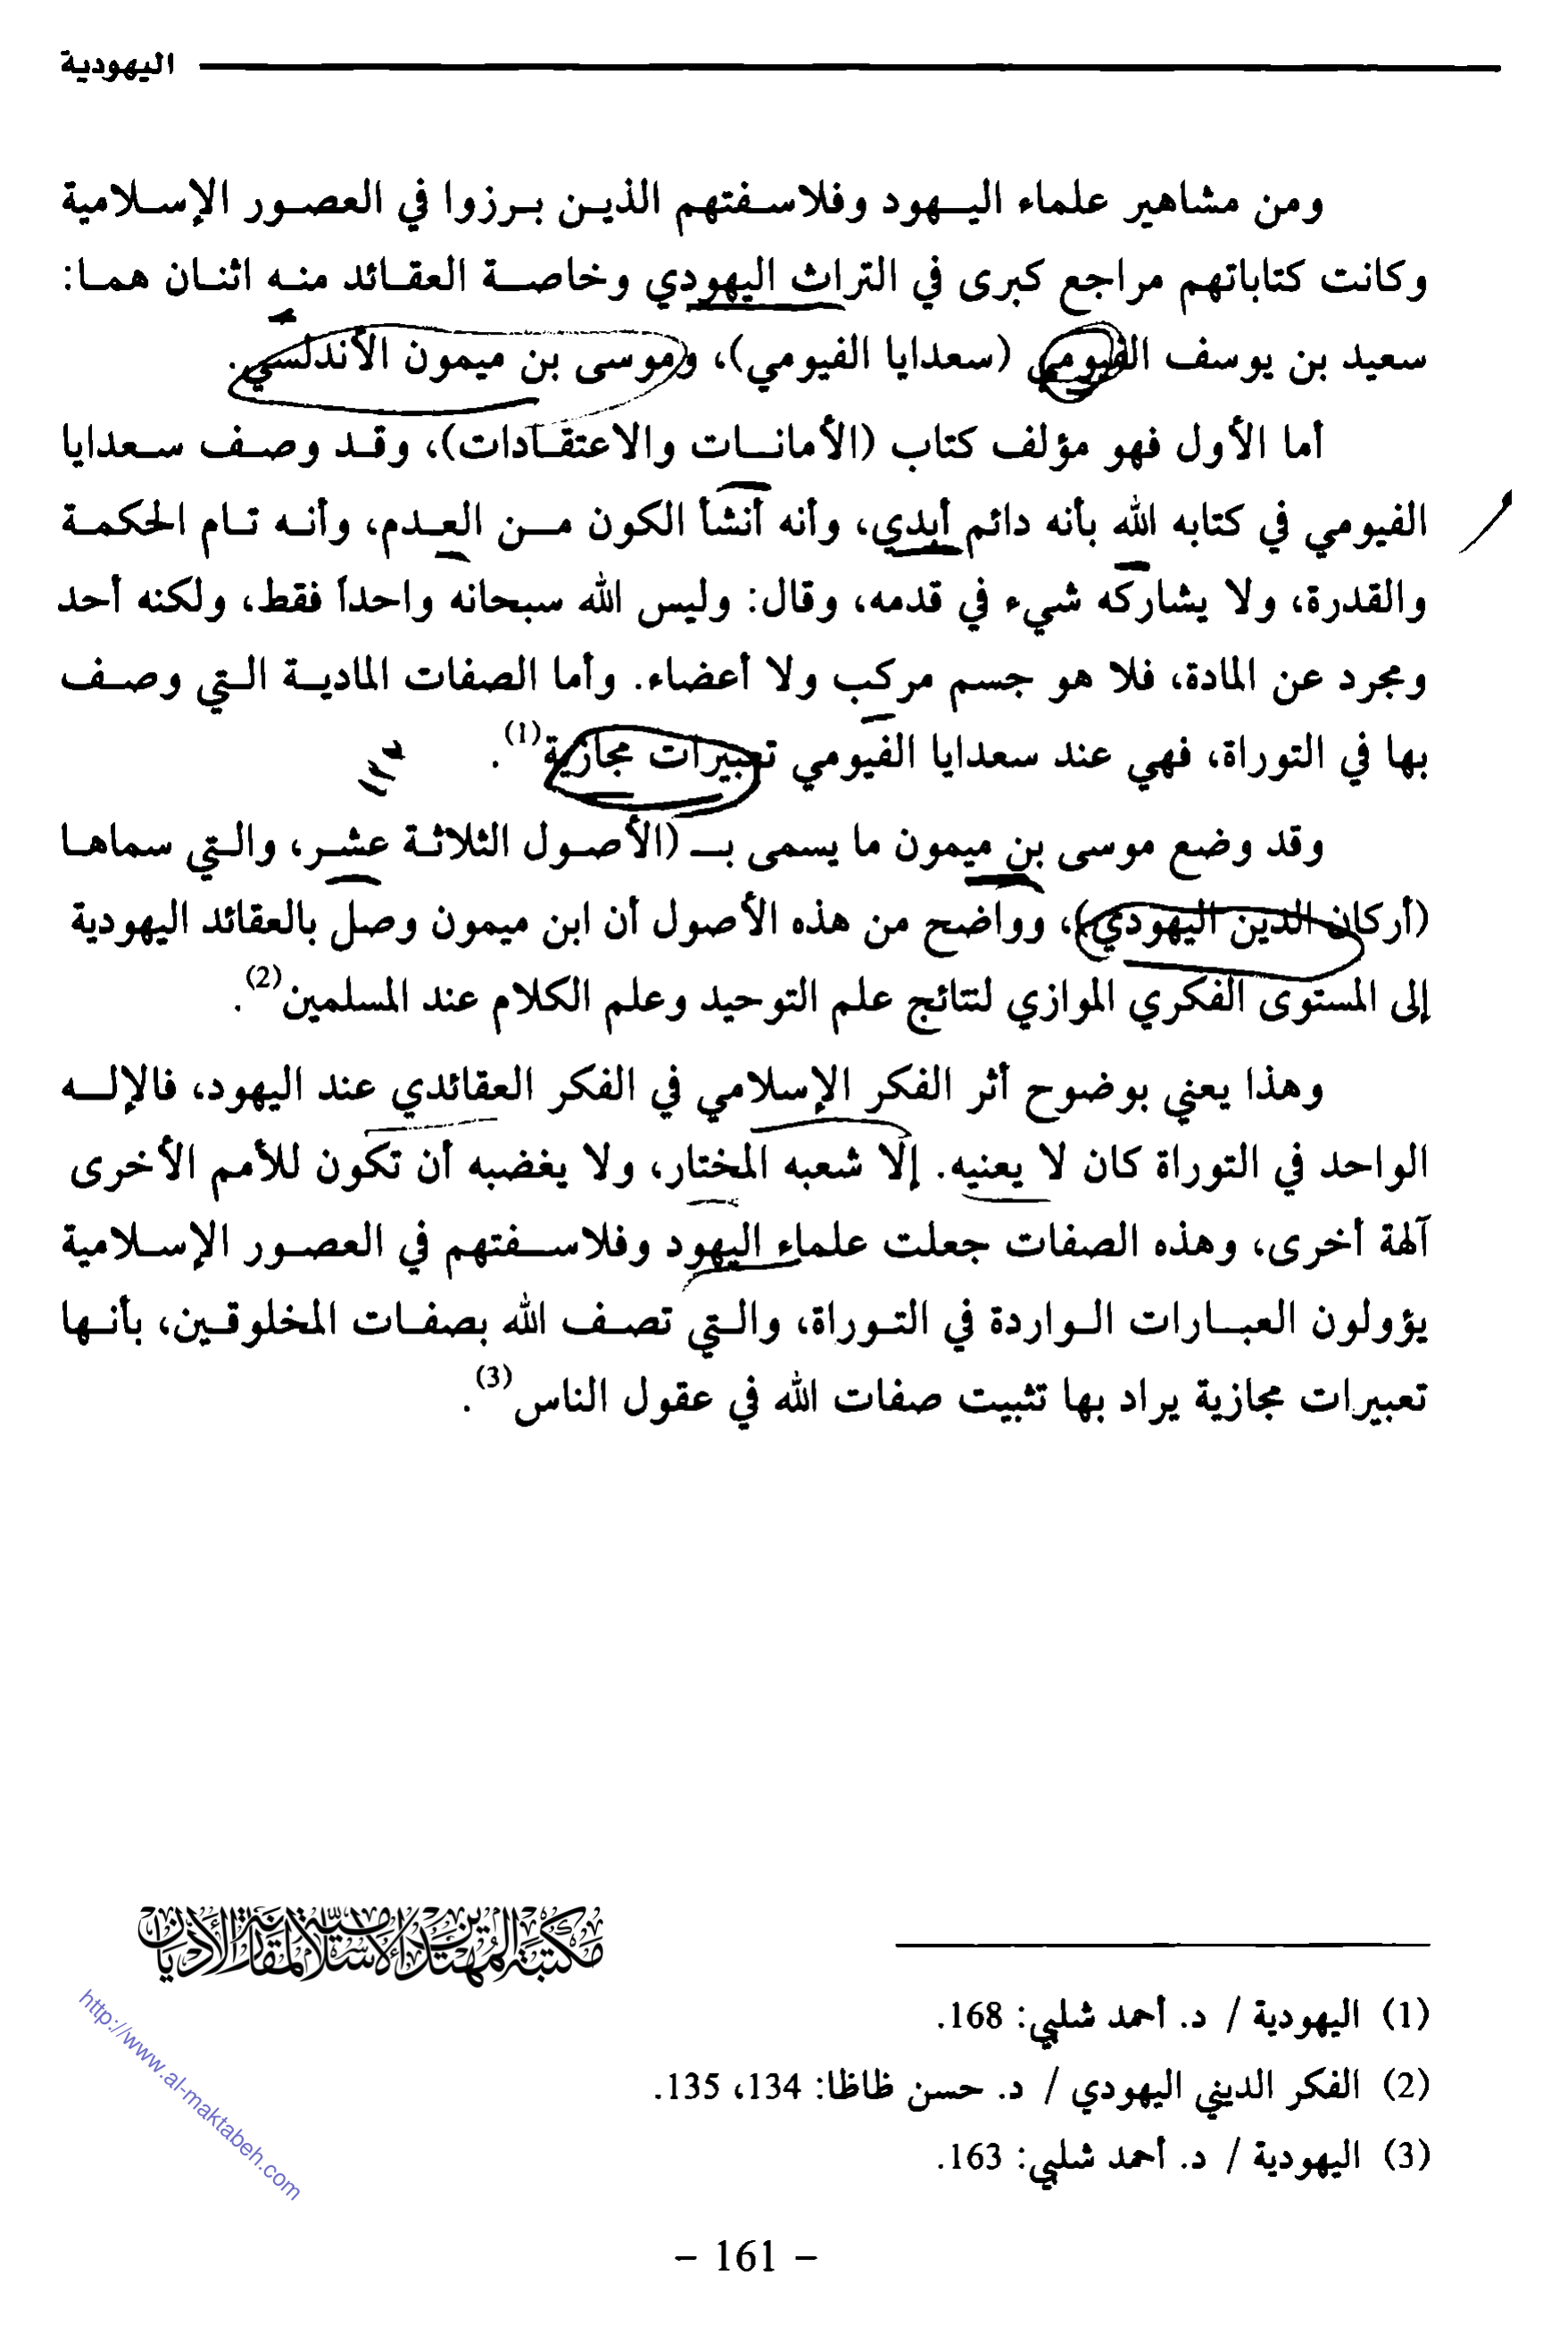 اليهودية
ومن مشاهير علماء اليهود وفلاسفتهم الذين برزوا في العصور الإسلامية
وكانت كتاباتهم مراجع كبرى في التراث اليهودي وخاصة العقائد منه اثنان هما:
سعيد بن يوسف الفيومي (سعدايا الفيومي)، وموسى بن ميمون الأندلسي.
أما الأول فهو مؤلف كتاب (الأمانات والاعتقادات)، وقد وصف سعدايا
الفيومي في كتابه الله بأنه دائم أبدي، وأنه أنشأ الكون من العدم، وأنه تام الحكمة
والقدرة، ولا يشاركه شيء في قدمه، وقال: وليس الله سبحانه واحداً فقط، ولكنه أحد
ومجرد عن المادة، فلا هو جسم مركب ولا أعضاء. وأما الصفات المادية التي وصف
بها في التوراة، فهي عند سعدايا الفيومي تعبيرات مجازية(1).
وقد وضع موسى بن ميمون ما يسمى بـ (الأصول الثلاثة عشر، والتي سماها
(أركان الدين اليهودي)، وواضح من هذه الأصول أن ابن ميمون وصل بالعقائد اليهودية
إلى المستوى الفكري الموازي لنتائج علم التوحيد وعلم الكلام عند المسلمين(2).
وهذا يعني بوضوح أثر الفكر الإسلامي في الفكر العقائدي عند اليهود، فالإله
الواحد في التوراة كان لا يعنيه. إلا شعبه المختار، ولا يغضبه أن تكون للأمم الأخرى
آلهة أخرى، وهذه الصفات جعلت علماء اليهود وفلاسفتهم في العصور الإسلامية
يؤولون العبارات الواردة في التوراة، والتي تصف الله بصفات المخلوقين، بأنها
تعبيرات مجازية يراد بها تثبيت صفات الله في عقول الناس(3).
مكتبة المهتدين الإسلامية لمقارنة الأديان
http://www.al-maktabeh.com
(1) اليهودية / د. أحمد شلبي: 168.
(2) الفكر الديني اليهودي / د. حسن ظاظا: 134، 135.
(3) اليهودية / د. أحمد شلبي: 163.
- 161 -